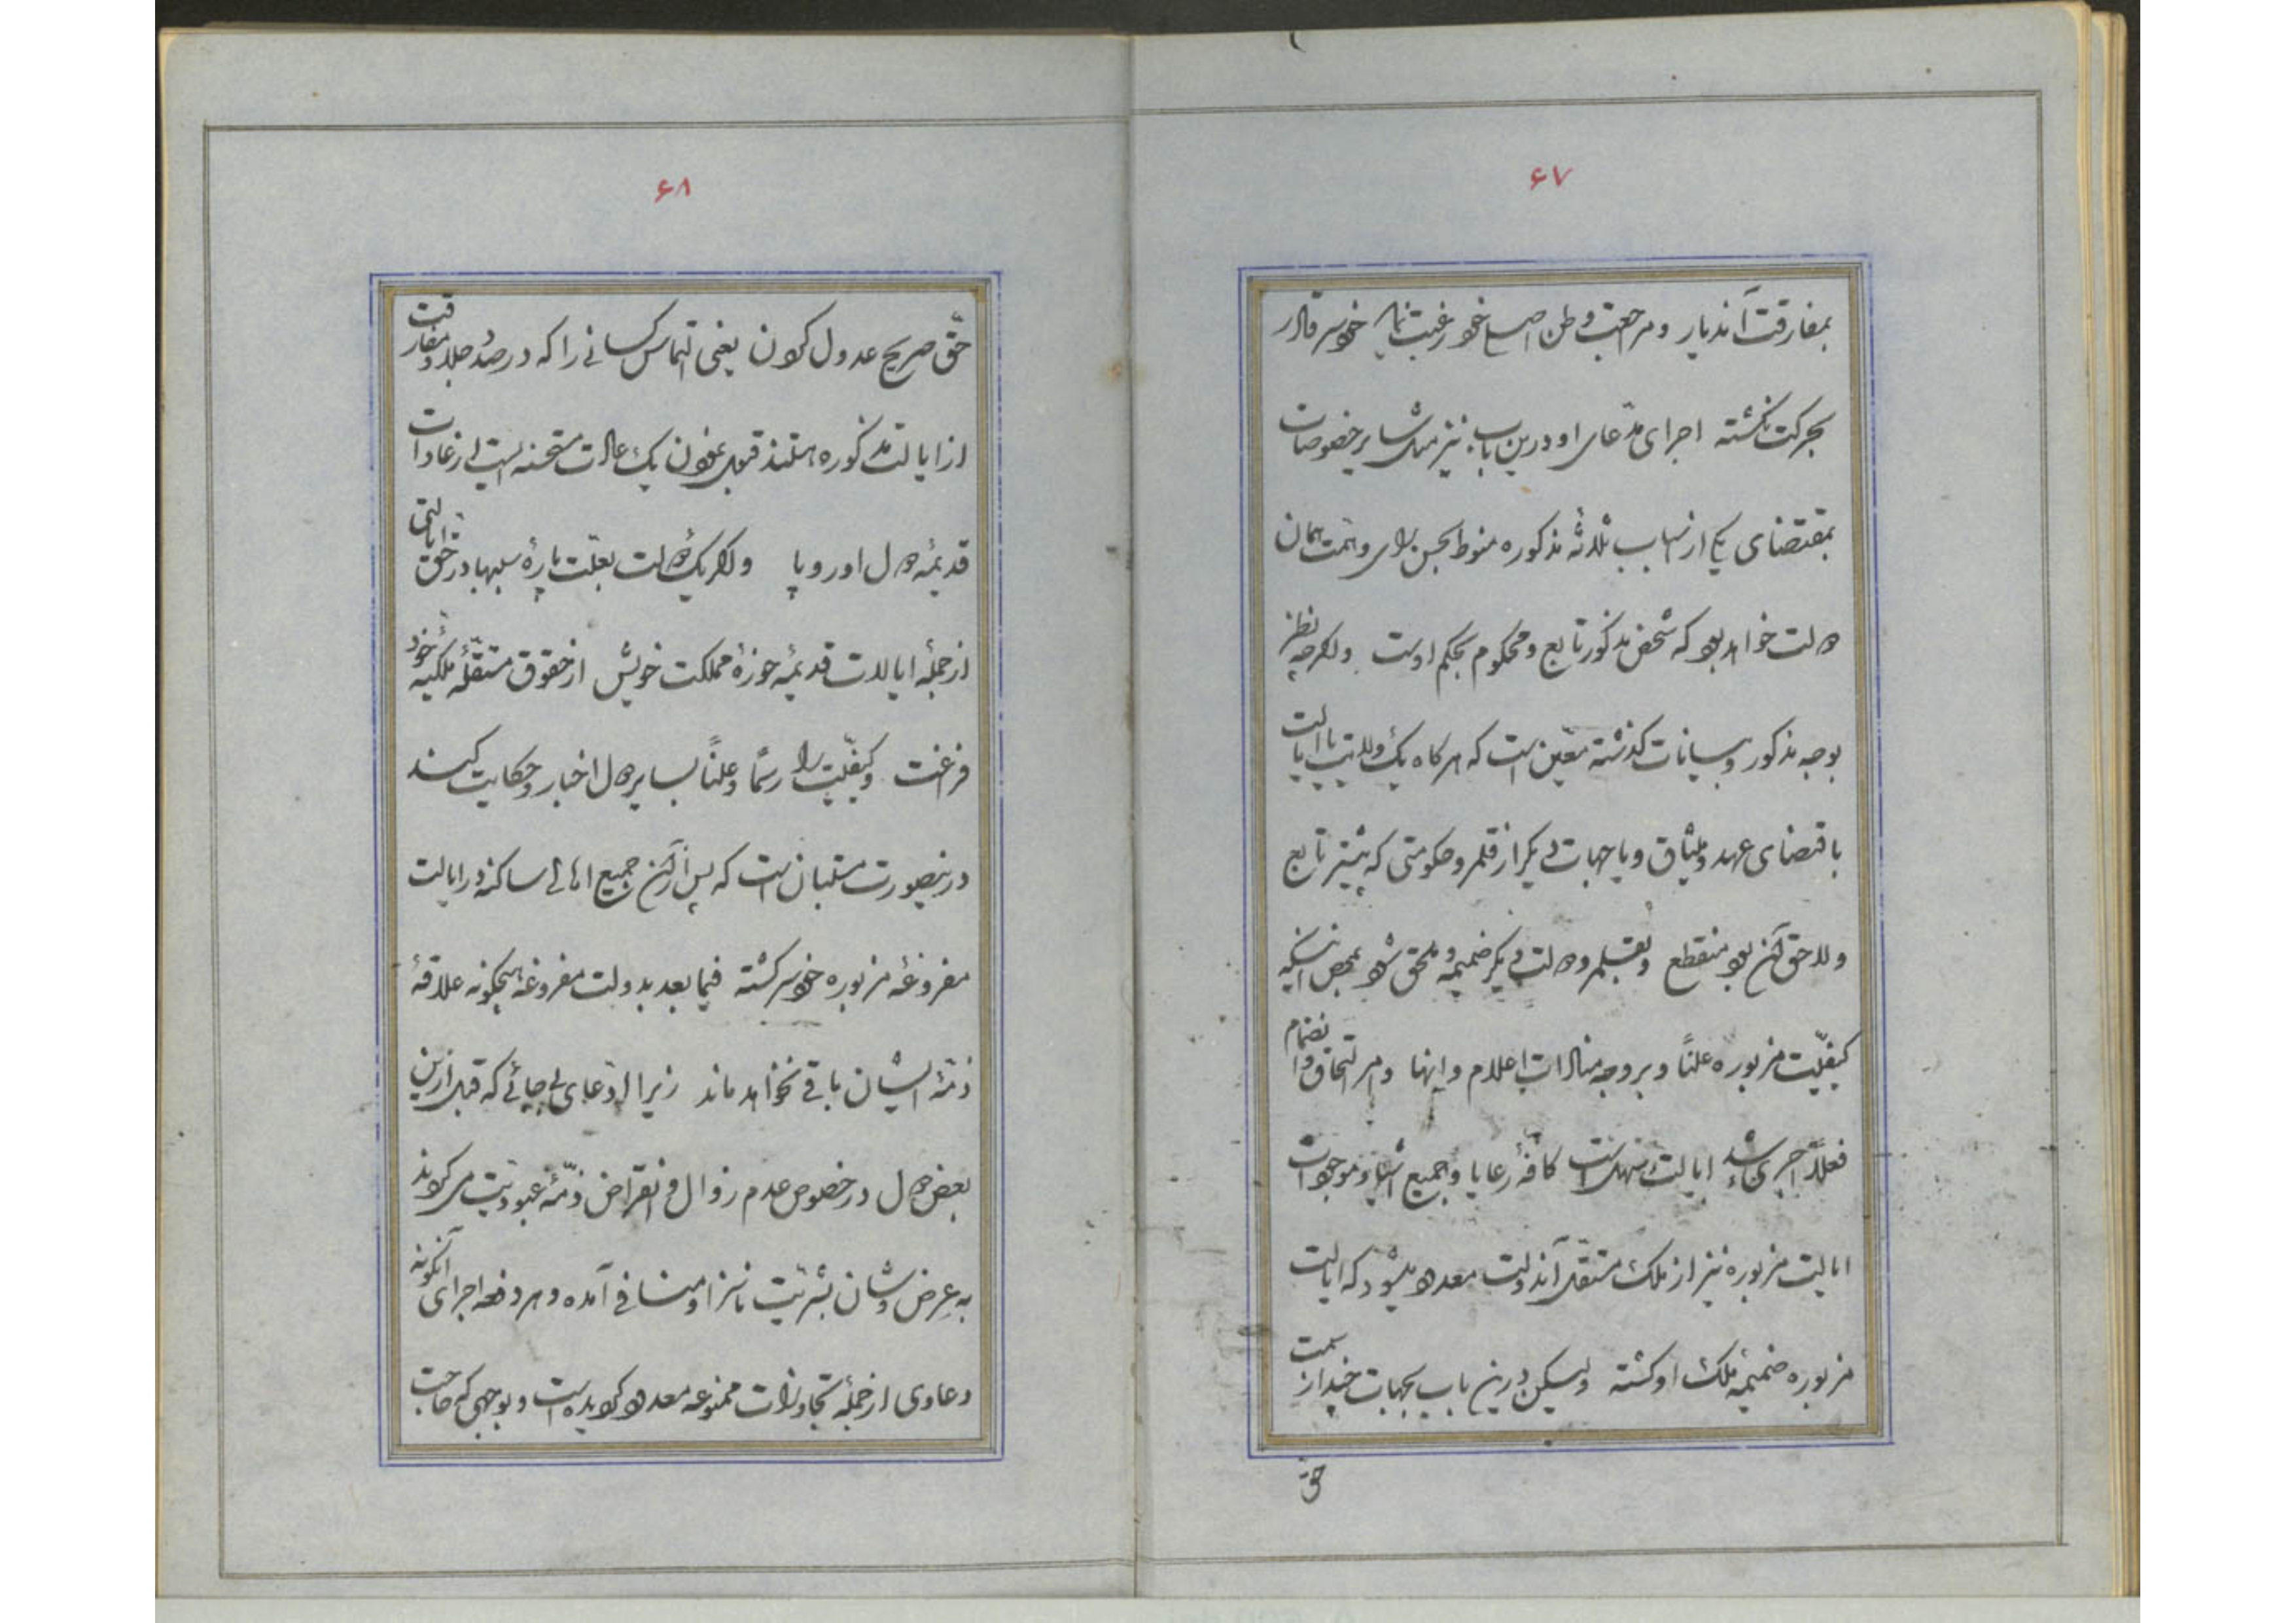 ۶۷
بمفارقت آندیار و مراجعت وطن اصلی خود رغبت نماید خودسر قادر
بحرکت نگشته اجرای مدّعای او درین باب نیز مثل سایر خصوصات
بمقتضای یکی از اسباب ثلاثهٔ مذکوره منوط بحسن رای و همت همان
دولت خواهد بود که شخص مذکور تابع و محکوم بحکم اوست و اگرچه نظر
بوجه مذکور و بیانات گذشته معیّن است که هرگاه یک ولایت یا ایالت
باقتضای عهد و میثاق و یا جهات دیگر از قلمرو حکومتی که پیشتر تابع
و لاحق آن بود منقطع و بقلمرو دولت دیگر ضمیمه و ملحق شود بمحض اینکه
کیفیّت مزبوره علناً و بر وجه منادات اعلام و انها و امر التحاق و انضمام
فعلاً اجری شد ایالت کافهٔ رعایا و جمیع اشیاء و موجودات
ایالت مزبوره نیز از ملک مستقلّ آندولت معدود میشود که ایالت
مزبوره ضمیمهٔ ملک او گشته ولیکن درین باب بجهات چند از سمت
حق
۶۸
حقّ صریح عدول کردن یعنی التماس کسانی را که در صدد جلا و مفارقت
از ایالت مذکوره هستند قبول نمودن یک عادت مستحسنه ایست از عادات
قدیمهٔ دول اوروپا و اگر یک دولت بعلّت پارهٔ سببها در حق ایالتی
از جملهٔ ایالات قدیمهٔ حوزهٔ مملکت خویش از حقوق مستقلّهٔ ملکیهٔ خود
فراغت و کیفیّت را رسماً و علناً بسایر دول اخبار و حکایت کند
درینصورت مستبان است که پس از آن جمیع اهالی ساکنه در ایالت
مفروغهٔ مزبوره خودسر گشته فیما بعد بدولت مفروغه هیچگونه علاقهٔ
ذمّهٔ ایشان باقی نخواهد ماند زیرا ادّعای بیجائی که قبل ازین
بعض دول در خصوص عدم زوال و انقراض ذمّهٔ عبودیّت میکردند
به عرض و شان بشریّت ناسزا و منافی آمده و هر دفعه اجرای آنگونه
دعاوی از جملهٔ تجاوزات ممنوعه معدود گردیده است و بوجهی که صاحب